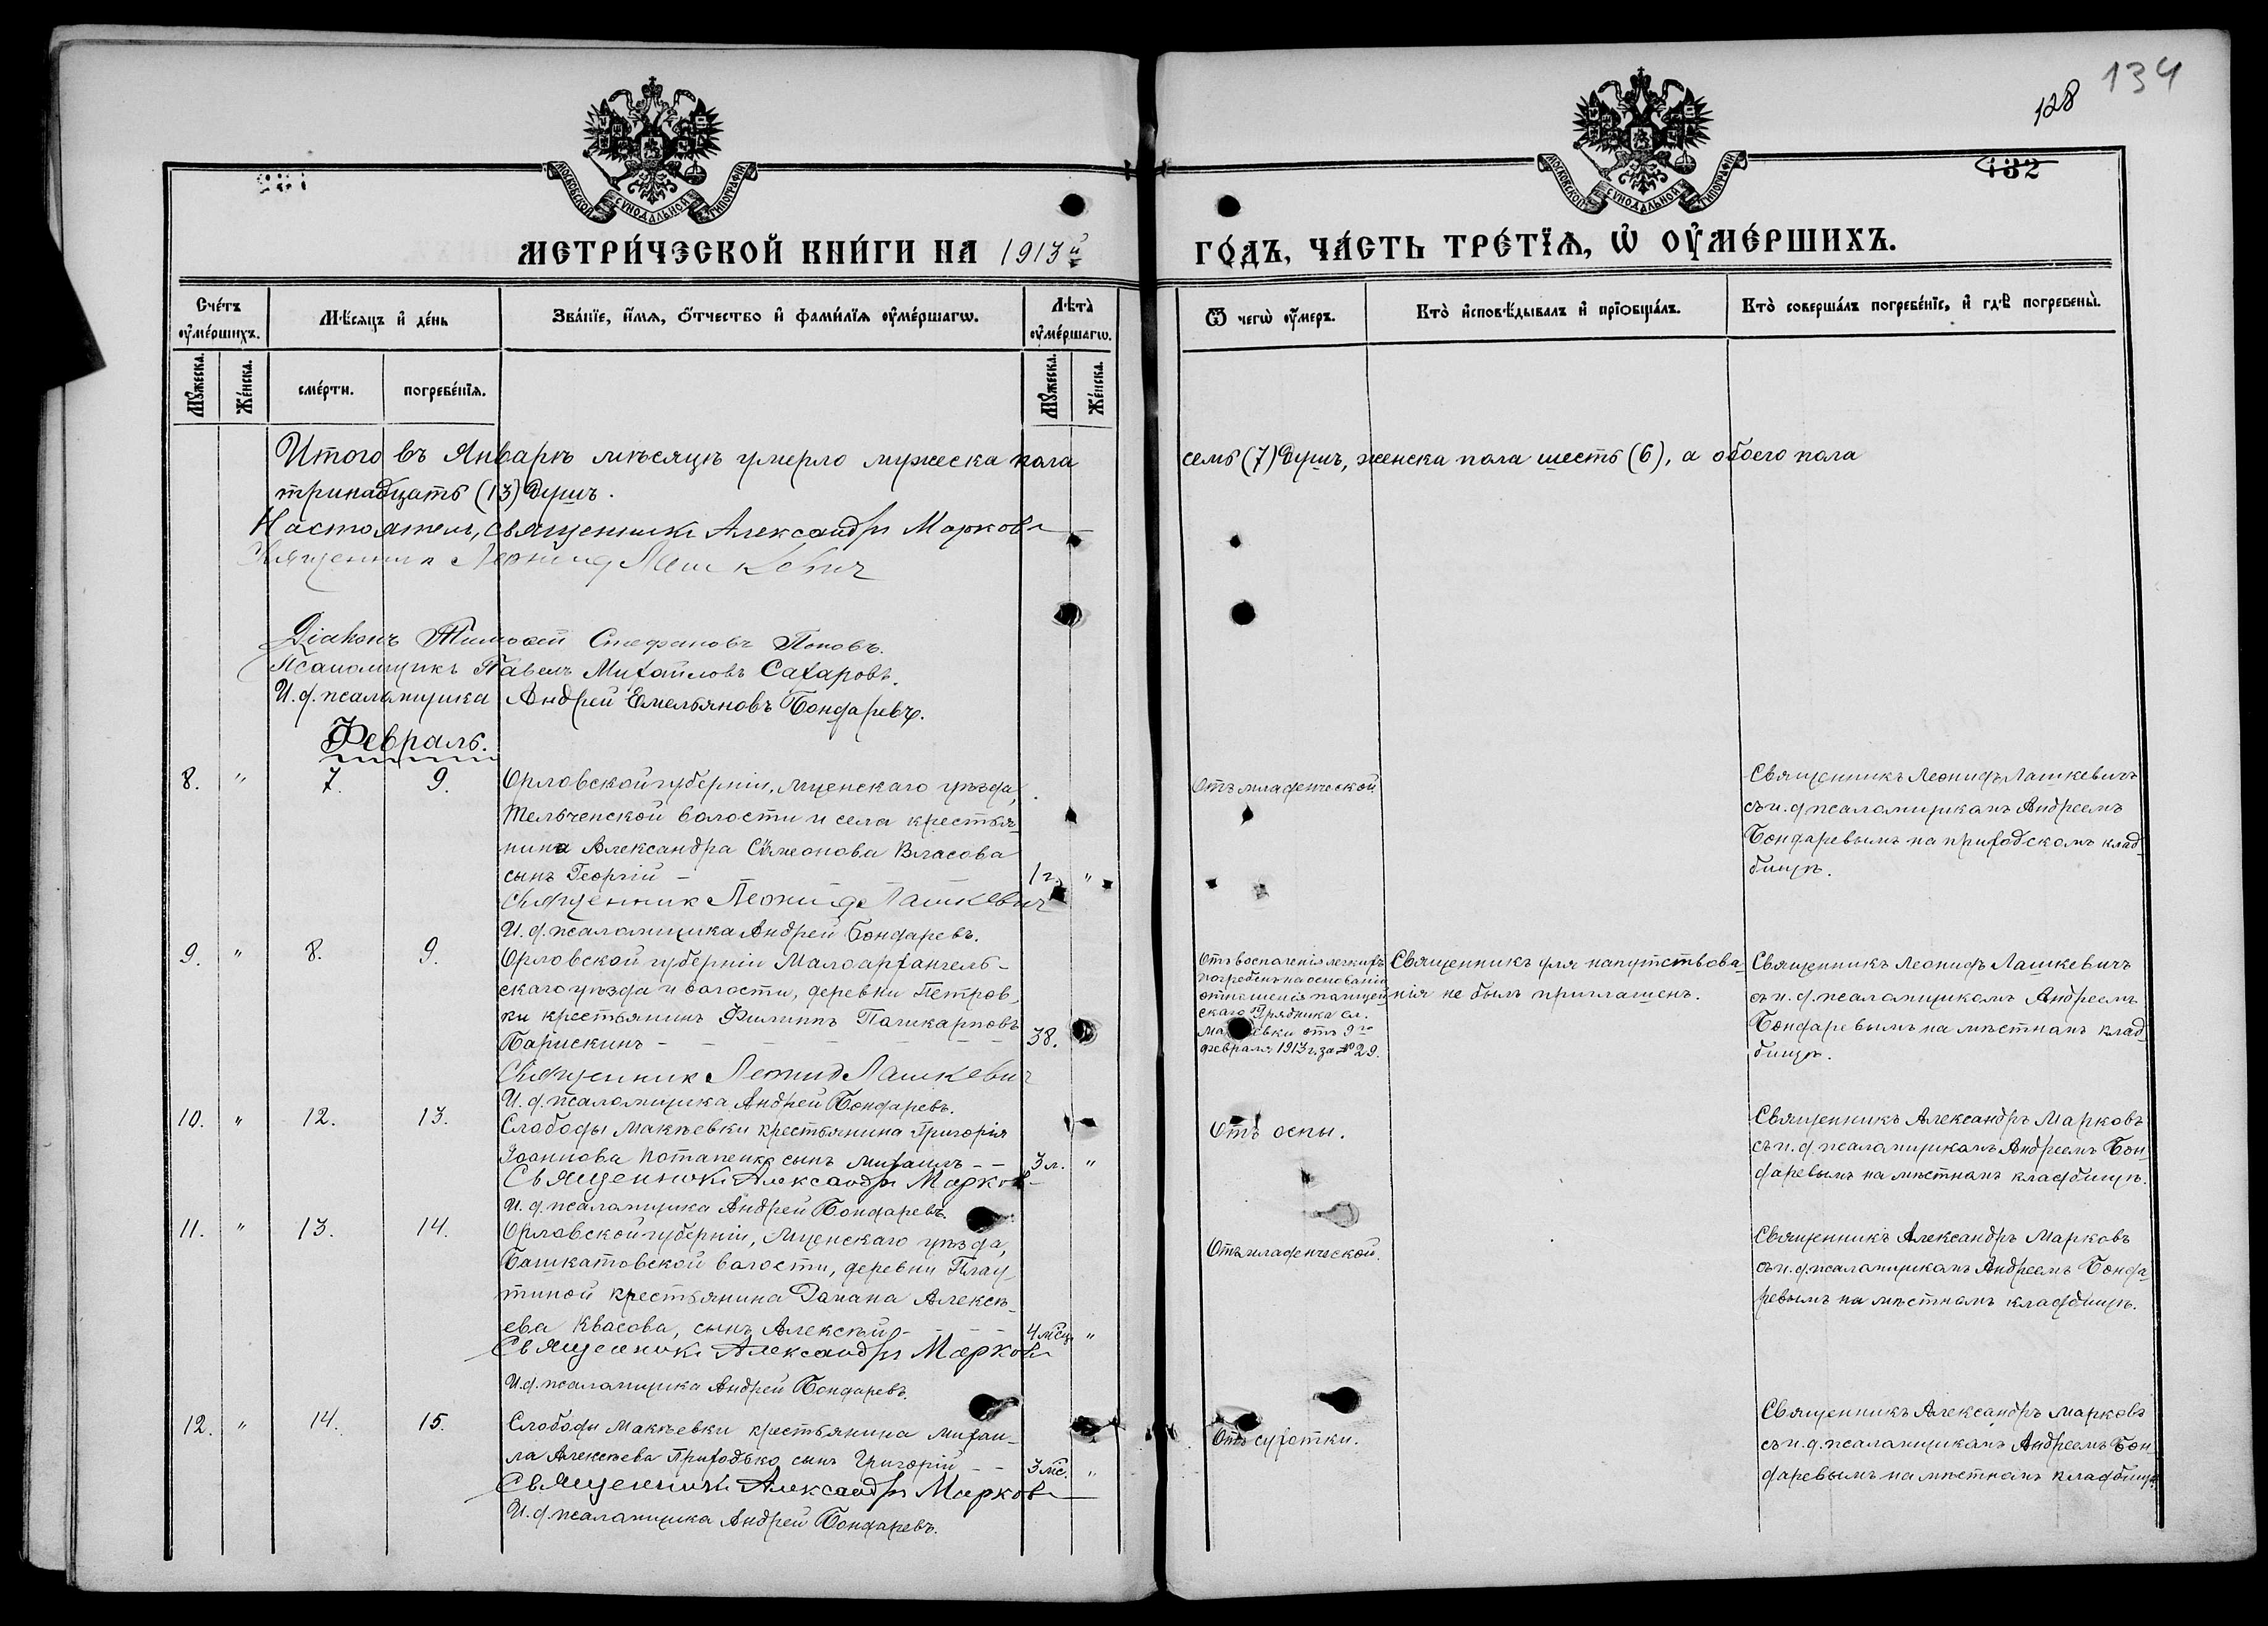 134
128
132
МОСКОВСКОЙ СѴНОДАЛЬНОЙ ТИПОГРАФІИ
МОСКОВСКОЙ СѴНОДАЛЬНОЙ ТИПОГРАФІИ
МЕТРИ́ЧЕСКОЙ КНИ́ГИ НА 1913й ГО́ДЪ, ЧА́СТЬ ТРЕ́ТІѦ, Ѡ҆ ОУ҆МЕ́РШИХЪ.
Сче́тъ оу҆ме́ршихъ.
Мѣ́сяцъ и҆ де́нь
Зва́нїе, и҆́мя, ѻ҆́тчество и҆ фами́лїя оу҆ме́ршагѡ.
Лѣта̀ оу҆ме́ршагѡ.
Ѿ чегѡ̀ оу҆́меръ.
Кто̀ и҆сповѣ́дывалъ и҆ прїобща́лъ.
Кто̀ соверша́лъ погребе́нїе, и҆ гдѣ̀ погребены̀.
Мꙋ́жеска.
Же́нска.
сме́рти.
погребе́нїя.
Мꙋ́жеска.
Же́нска.
Итого въ Январѣ мѣсяцѣ умерло мужеска пола семь (7) душъ, женска пола шесть (6), а обоего пола
тринадцать (13) душъ.
Настоятель, священникъ Александръ Марковъ
Священник Леонид Лашкевич
Діаконъ Тимоѳей Стефановъ Поповъ.
Псаломщикъ Павелъ Михайловъ Сахаровъ.
И. д. псаломщика Андрей Емельяновъ Бондаревъ.
Февраль.
8. " 7. 9.
Орловской губерніи, Мценскаго уѣзда,
Тельченской волости и села крестья-
нина Александра Сѵмеонова Власова
сынъ Георгій - 1 г. "
Священник Леонид Лашкевич
И. д. псаломщика Андрей Бондаревъ.
Отъ младенческой
Священникъ Леонидъ Лашкевичъ
съ и. д. псаломщикомъ Андреемъ
Бондаревымъ на приходскомъ клад-
бищѣ.
9. " 8. 9.
Орловской губерніи Малоархангель-
скаго уѣзда и волости, деревни Петров-
ки крестьянинъ Филиппъ Поликарповъ
Барискинъ - - - 38.
Священник Леонид Лашкевич
И. д. псаломщика Андрей Бондаревъ.
Отъ воспаленія легкихъ
погребенъ на основаніи
отношенія полицей-
скаго Урядника сл.
Макѣевки отъ 9го
февраля 1913 г. за № 29.
Священникъ для напутствова-
нія не былъ приглашенъ.
Священникъ Леонидъ Лашкевичъ
съ и. д. псаломщикомъ Андреемъ
Бондаревымъ на мѣстномъ клад-
бищѣ.
10. " 12. 13.
Слободы Макѣевки крестьянина Григорія
Іоаннова Потапенко сынъ Михаилъ - - 3 л. "
Священникъ Александръ Марковъ
И. д. псаломщика Андрей Бондаревъ.
Отъ оспы.
Священникъ Александръ Марковъ
съ и. д. псаломщикомъ Андреемъ Бон-
даревымъ на мѣстномъ кладбищѣ.
11. " 13. 14.
Орловской губерніи, Мценскаго уѣзда,
Башкатовской волости, деревни Плау-
тиной крестьянина Романа Алексѣ-
ева Квасова, сынъ Алексѣй - - - 4 мсц. "
Священникъ Александръ Марковъ
И. д. псаломщика Андрей Бондаревъ.
Отъ младенческой.
Священникъ Александръ Марковъ
съ и. д. псаломщикомъ Андреемъ Бонда-
ревымъ на мѣстномъ кладбищѣ.
12. " 14. 15.
Слободы Макѣевки крестьянина Михаи-
ла Алексѣева Приходько сынъ Григорій - - 3 мс. "
Священникъ Александръ Марковъ
И. д. псаломщика Андрей Бондаревъ.
Отъ сухотки.
Священникъ Александръ Марковъ
съ и. д. псаломщикомъ Андреемъ Бон-
даревымъ на мѣстномъ кладбищѣ.